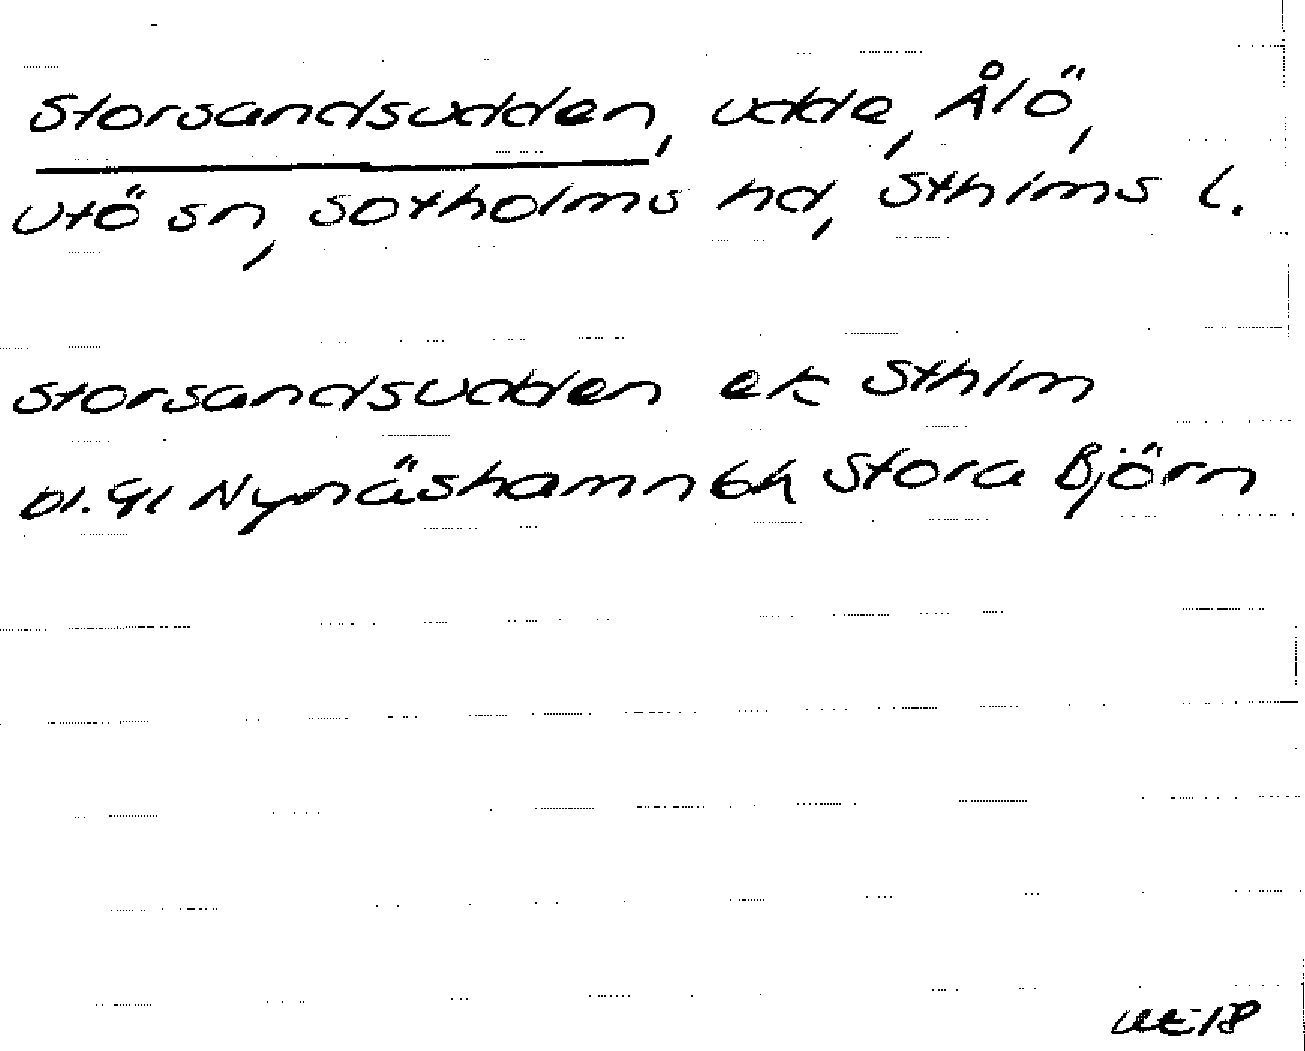 Storsandsudden, udde, Ålö,
Utö sn, Sotholms hd, Sthlms l.
Storsandsudden ek Sthlm
bl. 91 Nynäshamn 6h Stora Björn